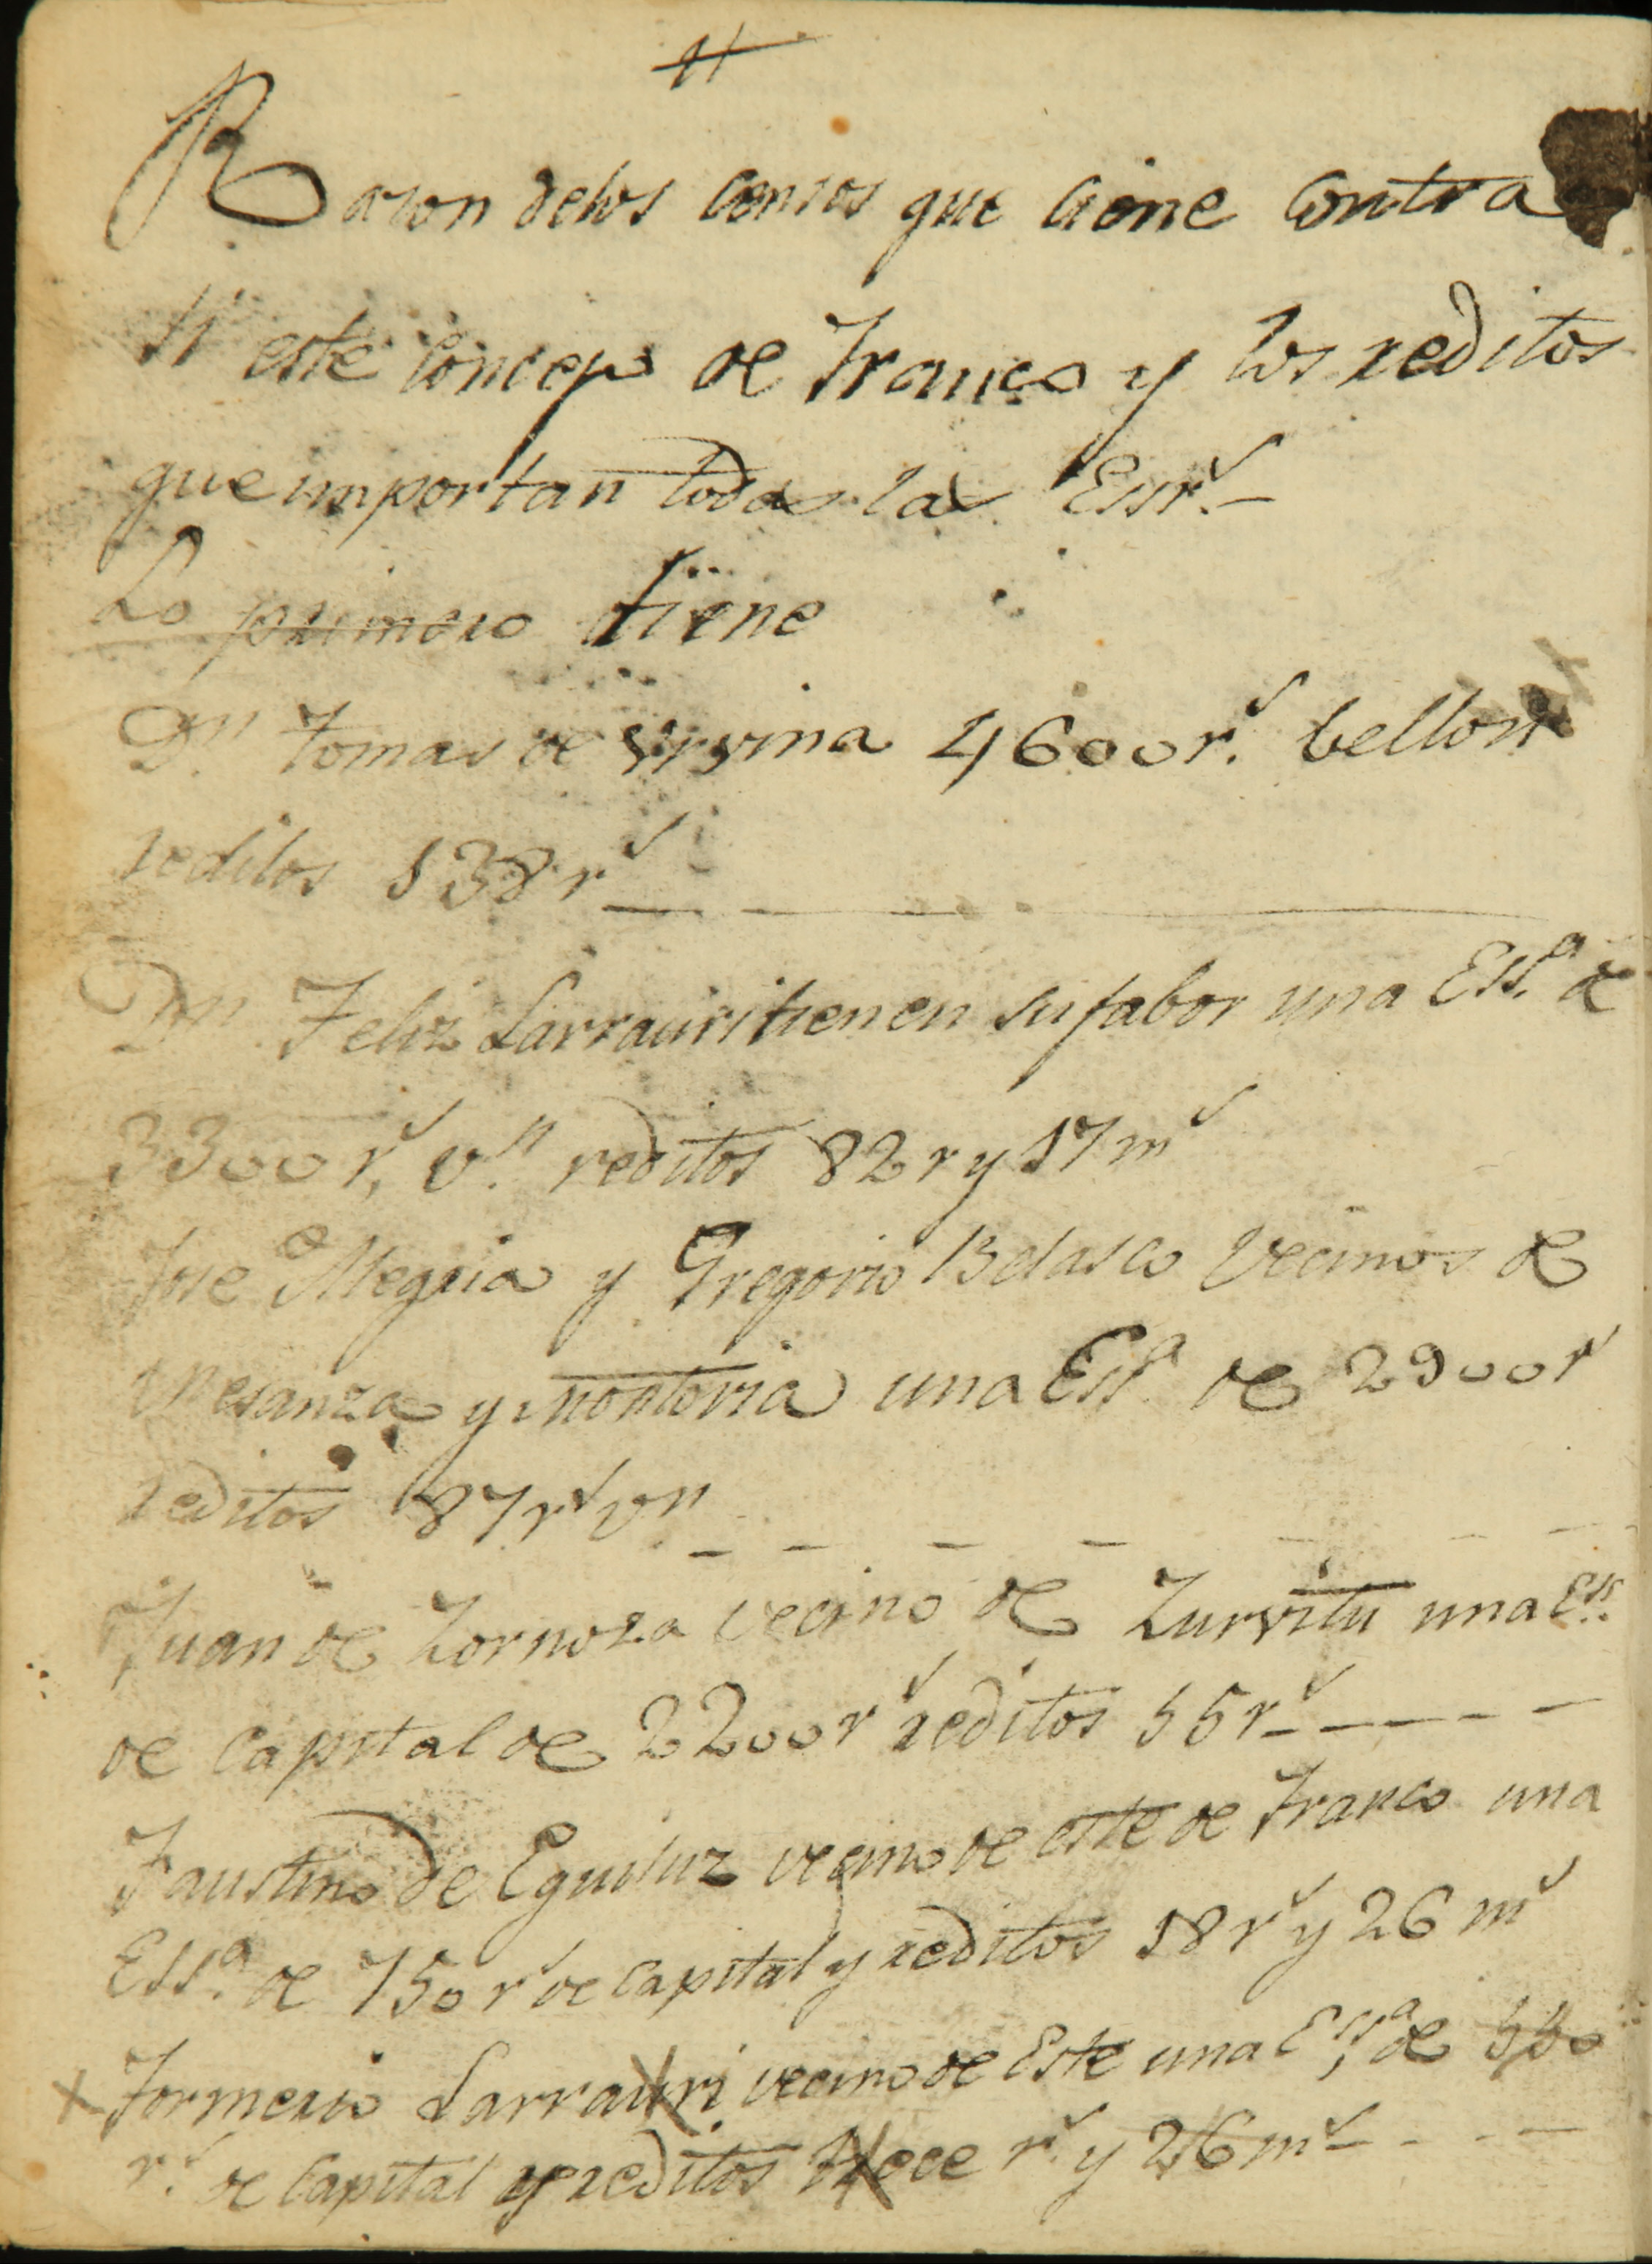 Rason delos censos que tiene contra
si este Concejo de Franco y los reditos
que importan todas las Essrs.
Lo primero tiene
Dn. Tomas de Vrvina 4600 rs. bellon
reditos 138 rs
Dn. Feliz Larrauri tienen su fabor una Essa. de
3300 rs, vn. reditos 82 r y 17 ms
Jose Alegria y Gregorio Belasco Vecinos de
y montoria una Essa. de 2900 rs
reditos 87 rs vn
Juan de Zornoza vecino de Zurvitu una Ess.
de capital de 2200 rs reditos 55 rs
Faustino de Eguiluz vecino de este de Franco una
Essa. de 750 rs de capital y reditos 18 rs y 26 ms
Formerio Larrauri vecino de Este una Essa, de 550
rs. de Capital y reditos rs. y 26 ms